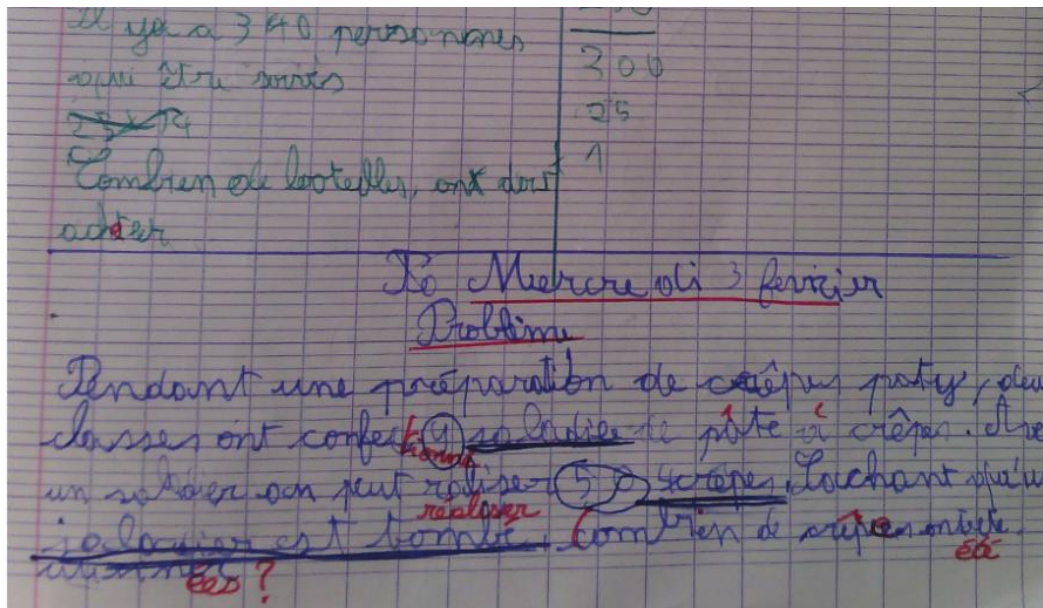 Il y a 340 personnes
qui être servis
300
25
1
Combien de boteilles, ont doit
acheter
Mercredi 3 fevrier
Problème
Pendant une préparation de crêpes party, deu
classes ont confec 4 saladier de pâte à crêpes. Ave
tionné
un saladier on peut raliser 50 crêpes. Sachant qu'u
réaliser
saladier est tombé. Combien de crêpes ont
été
ées ?